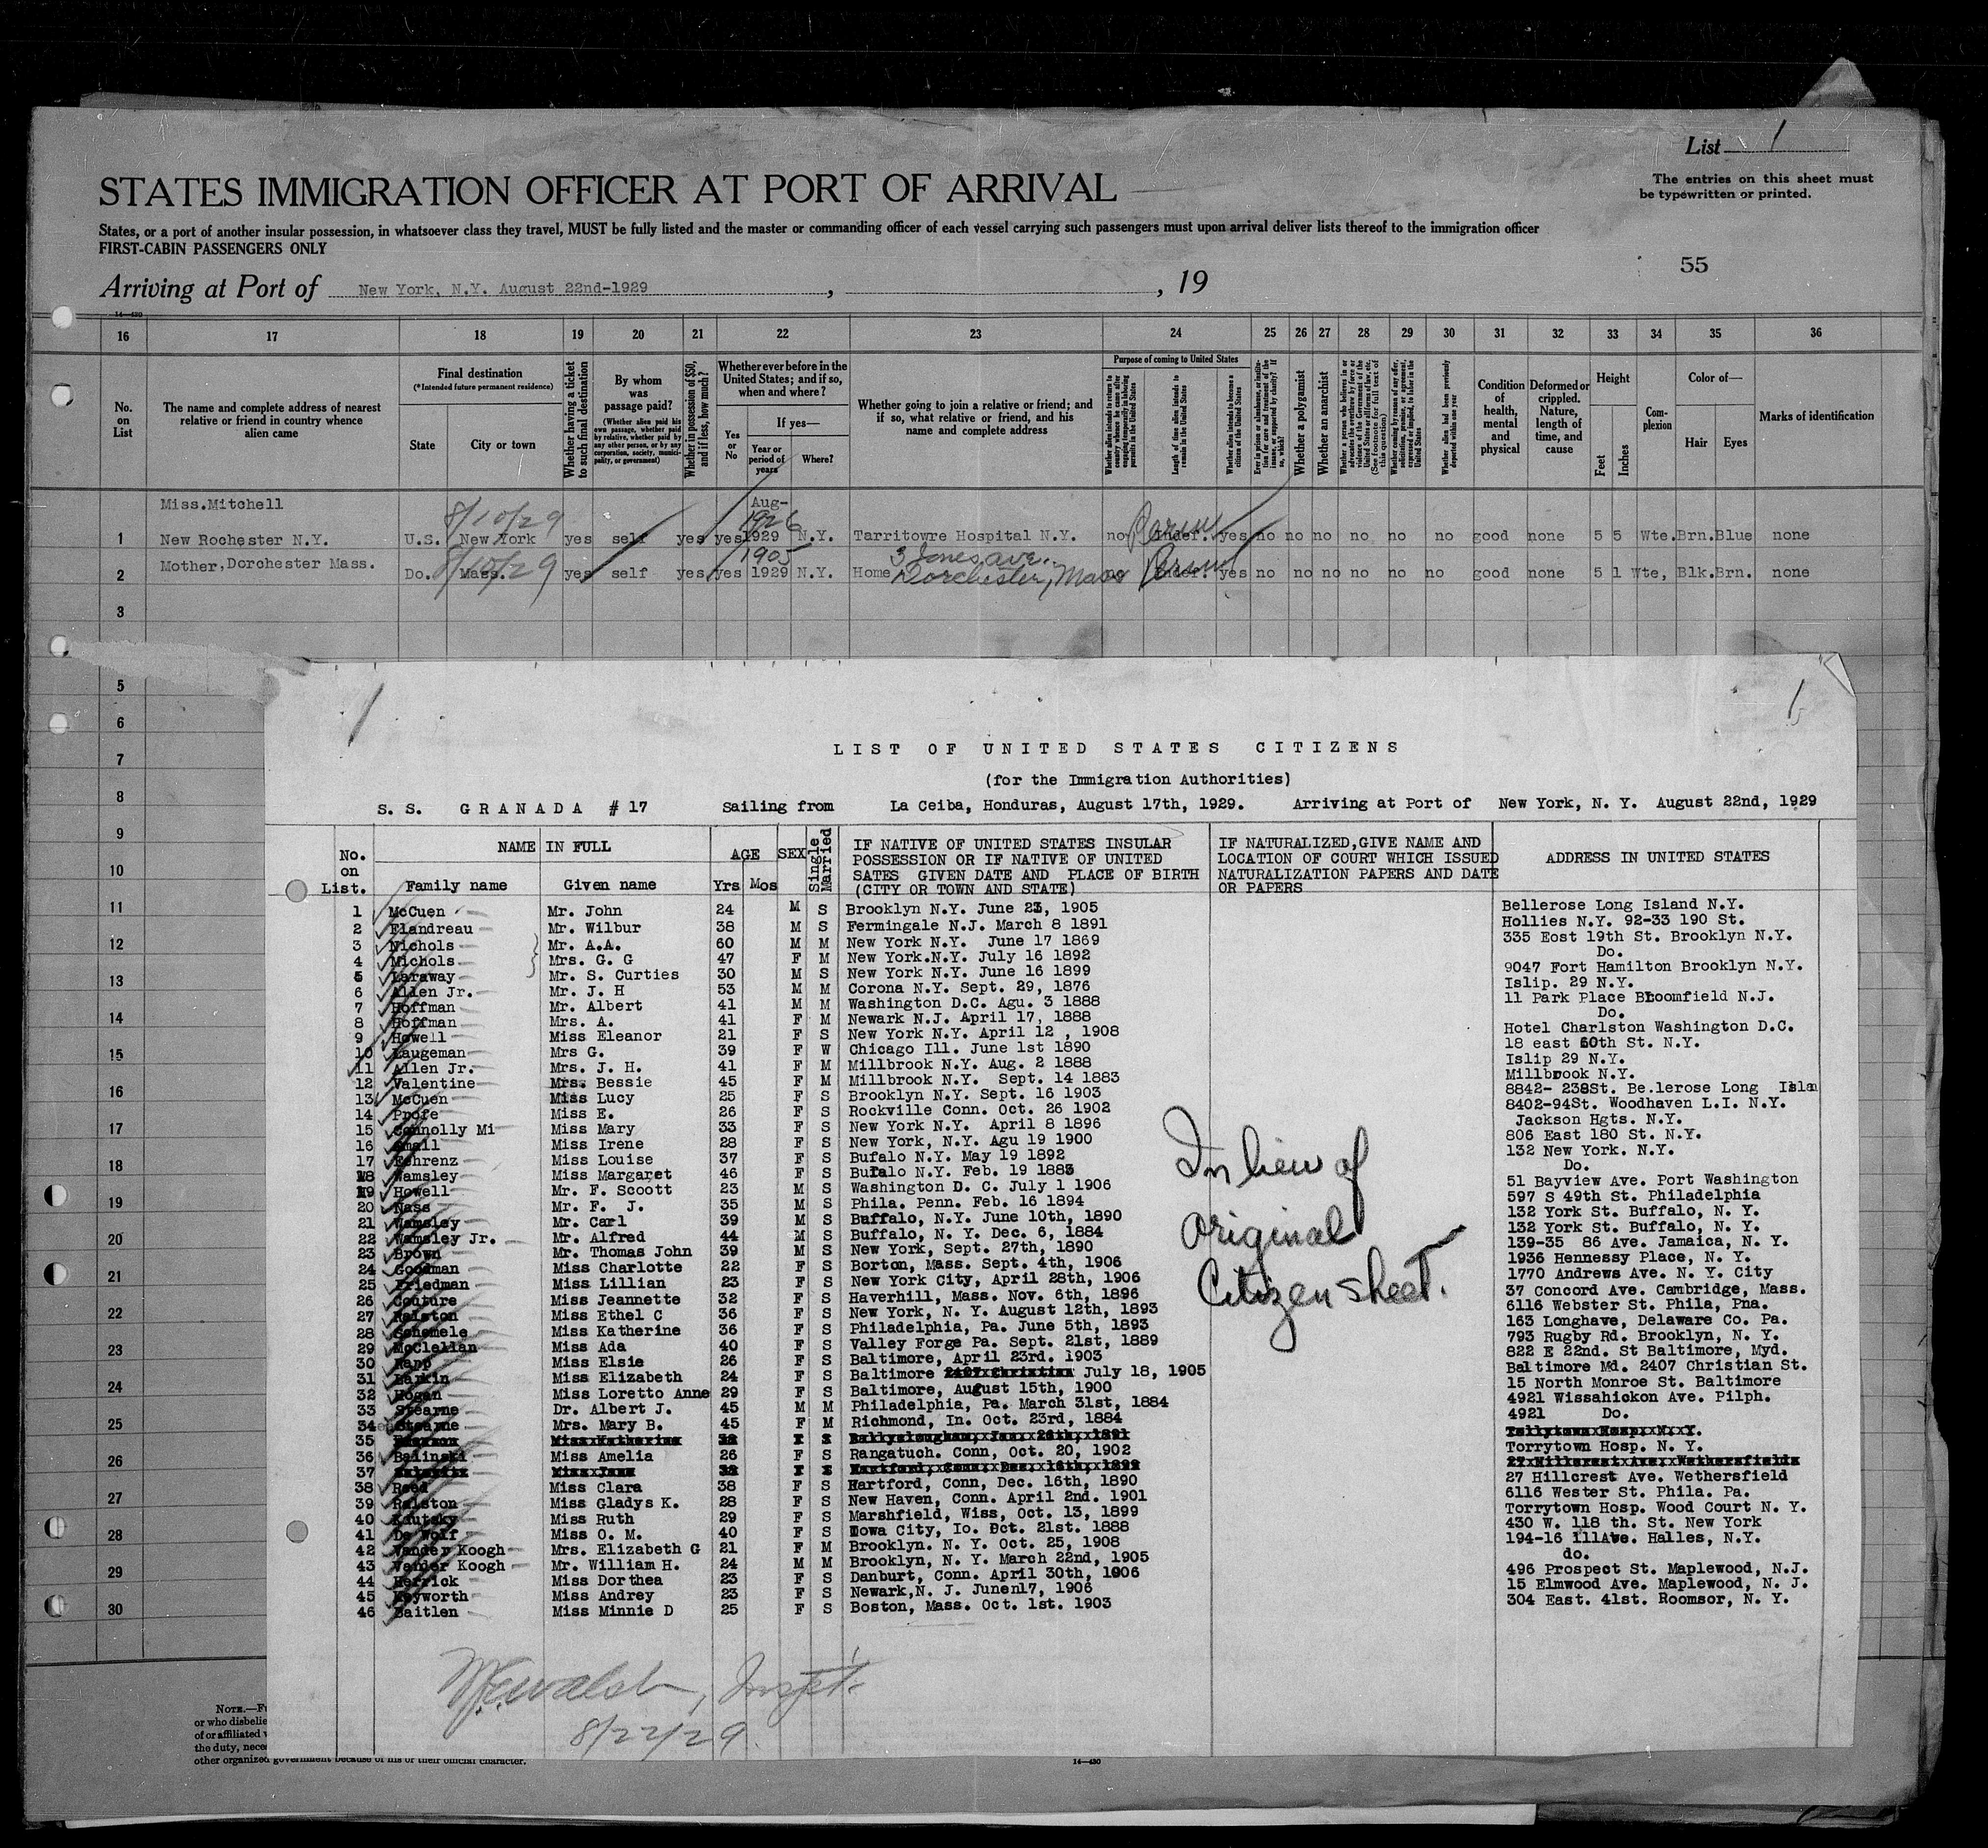 List 1
The entries on this sheet must
be typewritten or printed.
STATES IMMIGRATION OFFICER AT PORT OF ARRIVAL
States, or a port of another insular possession, in whatsoever class they travel, MUST be fully listed and the master or commanding officer of each vessel carrying such passengers must upon arrival deliver lists thereof to the immigration officer
FIRST-CABIN PASSENGERS ONLY
55
Arriving at Port of New York, N.Y. August 22nd-1929 , , 19
14—430
16 17 18 19 20 21 22 23 24 25 26 27 28 29 30 31 32 33 34 35 36
No. on List
The name and complete address of nearest relative or friend in country whence alien came
Final destination
(*Intended future permanent residence)
State City or town
Whether having a ticket to such final destination
By whom was passage paid?
(Whether alien paid his own passage, whether paid by relative, whether paid by any other person, or by any corporation, society, municipality, or government)
Whether in possession of $50, and if less, how much?
Whether ever before in the United States; and if so, when and where?
Yes or No
If yes—
Year or period of years
Where?
Whether going to join a relative or friend; and if so, what relative or friend, and his name and complete address
Purpose of coming to United States
Whether alien intends to return to country whence he came after engaging temporarily in laboring pursuits in the United States
Length of time alien intends to remain in the United States
Whether alien intends to become a citizen of the United States
Whether a polygamist
Whether an anarchist
Whether alien had been previously deported within one year
Condition of health, mental and physical
Deformed or crippled. Nature, length of time, and cause
Height
Feet Inches
Complexion
Color of—
Hair Eyes
Marks of identification
Miss.Mitchell 8/10/29 Aug- 1926
1 New Rochester N.Y. U.S. New York yes self yes yes 1929 N.Y. Tarritowre Hospital N.Y. no Perm Indef. yes no no no no no no good none 5 5 Wte. Brn. Blue none
1905 3 Jones ave.
2 Mother, Dorchester Mass. Do. Mass. 8/10/29 yes self yes yes 1929 N.Y. Home Dorchester, Mass no Perm Indef. yes no no no no no no good none 5 1 Wte, Blk. Brn. none
3
5
6
7
8
9
10
11
12
13
14
15
16
17
18
19
20
21
22
23
24
25
26
27
28
29
30
1 1
LIST OF UNITED STATES CITIZENS
(for the Immigration Authorities)
S. S. GRANADA #17 Sailing from La Ceiba, Honduras, August 17th, 1929. Arriving at Port of New York, N. Y. August 22nd, 1929
No. on List.
NAME IN FULL
Family name Given name
AGE
Yrs Mos
SEX
Single Married
IF NATIVE OF UNITED STATES INSULAR
POSSESSION OR IF NATIVE OF UNITED
SATES GIVEN DATE AND PLACE OF BIRTH
(CITY OR TOWN AND STATE)
IF NATURALIZED,GIVE NAME AND
LOCATION OF COURT WHICH ISSUED
NATURALIZATION PAPERS AND DATE
OR PAPERS
ADDRESS IN UNITED STATES
1 McCuen Mr. John 24 M S Brooklyn N.Y. June 23, 1905 Bellerose Long Island N.Y.
2 Flandreau Mr. Wilbur 38 M S Fermingale N.J. March 8 1891 Hollies N.Y. 92-33 190 St.
3 Nichols Mr. A.A. 60 M M New York N.Y. June 17 1869 335 Eost 19th St. Brooklyn N.Y.
4 Nichols Mrs. G. G 47 F M New York.N.Y. July 16 1892 Do.
5 Laraway Mr. S. Curties 30 M S New York N.Y. June 16 1899 9047 Fort Hamilton Brooklyn N.Y.
6 Allen Jr. Mr. J. H 53 M M Corona N.Y. Sept. 29, 1876 Islip. 29 N.Y.
7 Hoffman Mr. Albert 41 M M Washington D.C. Agu. 3 1888 11 Park Place Bloomfield N.J.
8 Hoffman Mrs. A. 41 F M Newark N.J. April 17, 1888 Do.
9 Howell Miss Eleanor 21 F S New York N.Y. April 12 , 1908 Hotel Charlston Washington D.C.
10 Laugeman Mrs G. 39 F W Chicago Ill. June 1st 1890 18 east 60th St. N.Y.
11 Allen Jr. Mrs. J. H. 41 F M Millbrook N.Y. Aug. 2 1888 Islip 29 N.Y.
12 Valentine Mrs. Bessie 45 F M Millbrook N.Y. Sept. 14 1883 Millbrook N.Y.
13 McCuen Miss Lucy 25 F S Brooklyn N.Y. Sept. 16 1903 8842- 238St. Be.lerose Long Isla
14 Profe Miss E. 26 F S Rockville Conn. Oct. 26 1902 8402-94St. Woodhaven L.I. N.Y.
15 Connolly Mi Miss Mary 33 F S New York N.Y. April 8 1896 Jackson Hgts. N.Y.
16 Small Miss Irene 28 F S New York, N.Y. Agu 19 1900 806 East 180 St. N.Y.
17 Fehrenz Miss Louise 37 F S Bufalo N.Y. May 19 1892 132 New York. N.Y.
18 Wamsley Miss Margaret 46 F S Bufalo N.Y. Feb. 19 1883 Do.
19 Howell Mr. F. Scoott 23 M S Washington D. C. July 1 1906 51 Bayview Ave. Port Washington
20 Nass Mr. F. J. 35 M S Phila. Penn. Feb. 16 1894 597 S 49th St. Philadelphia
21 Wamsley Mr. Carl 39 M S Buffalo, N.Y. June 10th, 1890 132 York St. Buffalo, N. Y.
22 Wamsley Jr. Mr. Alfred 44 M S Buffalo, N. Y. Dec. 6, 1884 132 York St. Buffalo, N. Y.
23 Brown Mr. Thomas John 39 M S New York, Sept. 27th, 1890 139-35 86 Ave. Jamaica, N. Y.
24 Goodman Miss Charlotte 22 F S Borton, Mass. Sept. 4th, 1906 1936 Hennessy Place, N. Y.
25 Friedman Miss Lillian 23 F S New York City, April 28th, 1906 1770 Andrews Ave. N. Y. City
26 Couture Miss Jeannette 32 F S Haverhill, Mass. Nov. 6th, 1896 37 Concord Ave. Cambridge, Mass.
27 Ralston Miss Ethel C 36 F S New York, N. Y. August 12th, 1893 6116 Webster St. Phila, Pna.
28 Schemele Miss Katherine 36 F S Philadelphia, Pa. June 5th, 1893 163 Longhave, Delaware Co. Pa.
29 McClellan Miss Ada 40 F S Valley Forge Pa. Sept. 21st, 1889 793 Rugby Rd. Brooklyn, N. Y.
30 Rapp Miss Elsie 26 F S Baltimore, April 23rd. 1903 822 E 22nd. St Baltimore, Myd.
31 Larkin Miss Elizabeth 24 F S Baltimore 2407 Christian July 18, 1905 Baltimore Md. 2407 Christian St.
32 Hogan Miss Loretto Anne 29 F S Baltimore, August 15th, 1900 15 North Monroe St. Baltimore
33 Stearne Dr. Albert J. 45 M M Philadelphia, Pa. March 31st, 1884 4921 Wissahickon Ave. Pilph.
34 Stearne Mrs. Mary B. 45 F M Richmond, In. Oct. 23rd, 1884 4921 Do.
35 Miss Katherine 38 Jan. 26th, 1891 Hosp. N. Y.
36 Balinski Miss Amelia 26 F S Rangatuch. Conn, Oct. 20, 1902 Torrytown Hosp. N. Y.
37 Hartford, Conn. Dec. 16th, 27 Hillcrest Ave. Wethersfield
38 Reed Miss Clara 38 F S Hartford, Conn, Dec. 16th, 1890 27 Hillcrest Ave. Wethersfield
39 Ralston Miss Gladys K. 28 F S New Haven, Conn. April 2nd. 1901 6116 Wester St. Phila. Pa.
40 Kautsky Miss Ruth 29 F S Marshfield, Wiss, Oct. 13, 1899 Torrytown Hosp. Wood Court N. Y.
41 De Wolf Miss O. M. 40 F S Iowa City, Io. Oct. 21st. 1888 430 W. 118 th. St. New York
42 Vander Koogh Mrs. Elizabeth G 21 F M Brooklyn. N. Y. Oct. 25, 1908 194-16 111Ave. Halles, N.Y.
43 Vander Koogh Mr. William H. 24 M M Brooklyn, N. Y. March 22nd, 1905 do.
44 Herrick Miss Dorthea 23 F S Danburt, Conn. April 30th, 1906 496 Prospect St. Maplewood, N.J.
45 Keyworth Miss Andrey 23 F S Newark,N. J. Junenl7, 1906 15 Elmwood Ave. Maplewood, N. J.
46 Baitlen Miss Minnie D 25 F S Boston, Mass. Oct. 1st. 1903 304 East. 41st. Roomsor, N. Y.
In lieu of
original
Citizen sheet.
Walsh, Inspt.
8/22/29
NOTE.—F
or who disbelie
of or affiliated
the duty, nece
other organized government because of his or their official character.
14—430